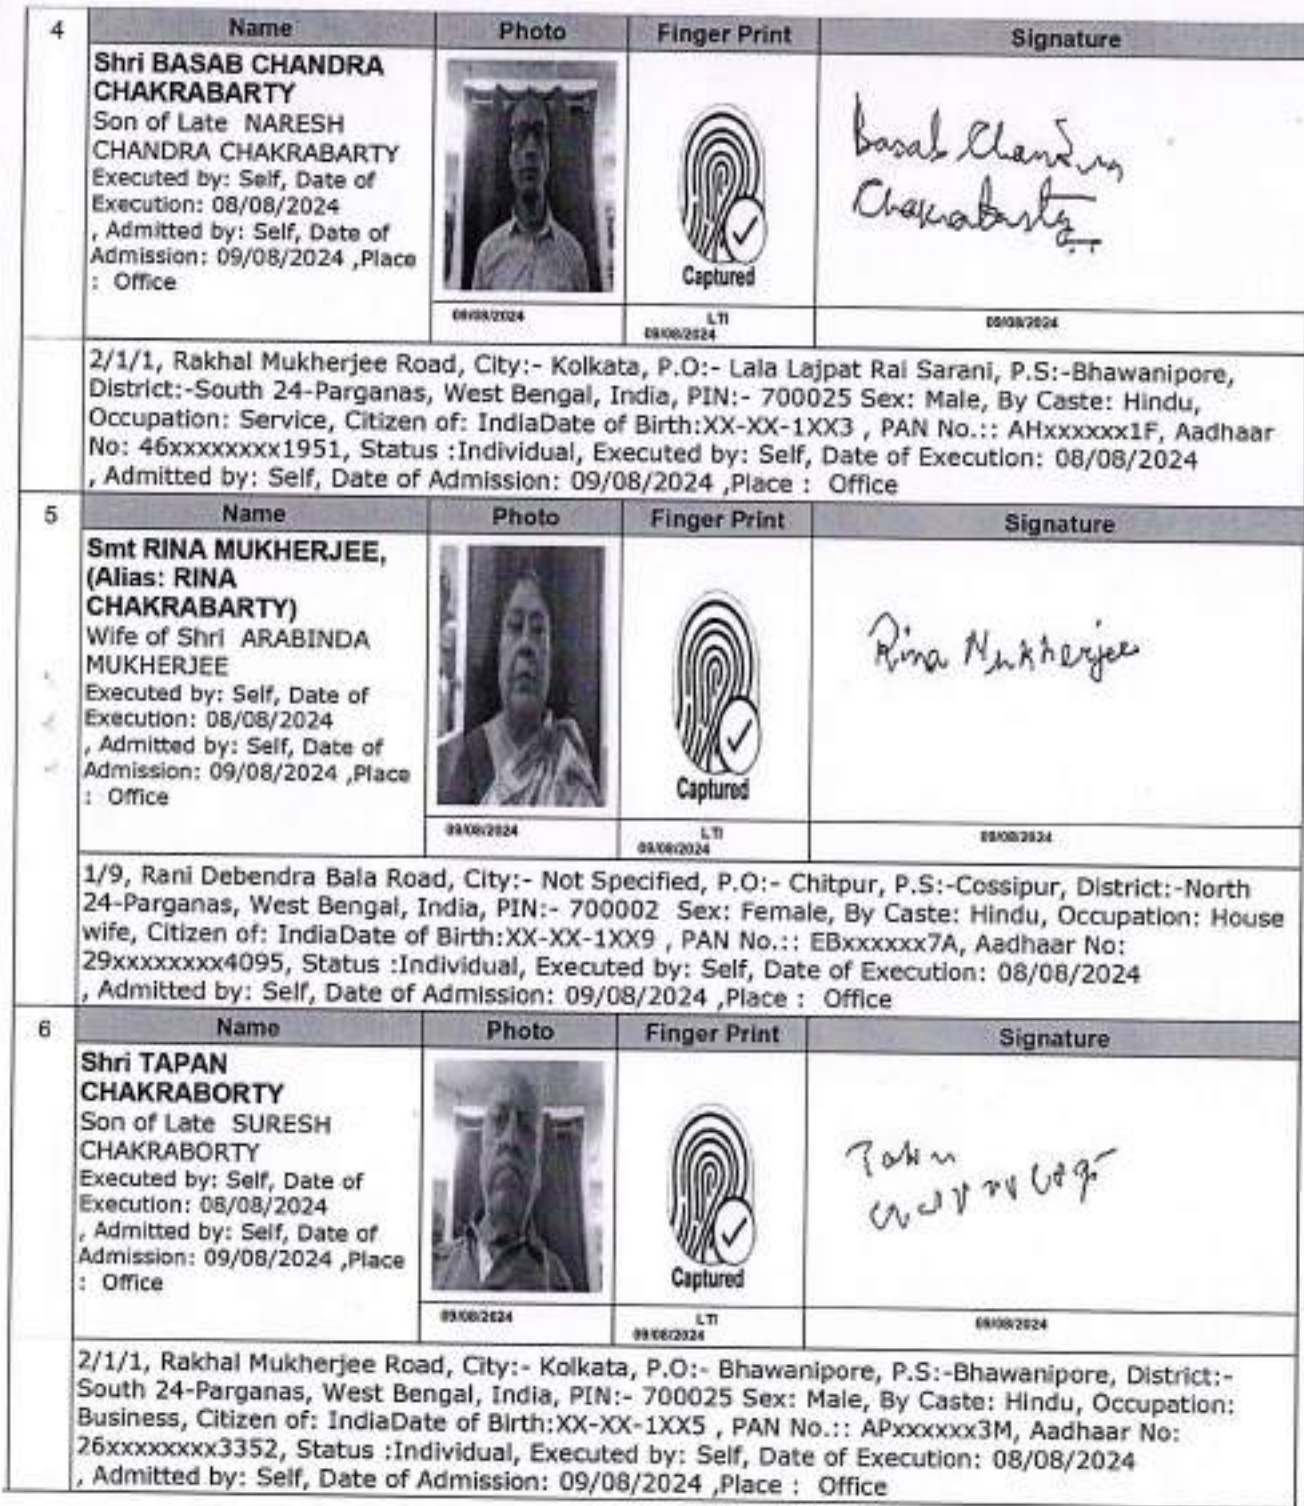 4
Name Photo Finger Print Signature
Shri BASAB CHANDRA
CHAKRABARTY
Son of Late NARESH
CHANDRA CHAKRABARTY
Executed by: Self, Date of
Execution: 08/08/2024
, Admitted by: Self, Date of
Admission: 09/08/2024 ,Place
: Office
Captured
Basab Chandra
Chakrabarty
09/08/2024 LTI 09/08/2024
09/08/2024
2/1/1, Rakhal Mukherjee Road, City:- Kolkata, P.O:- Lala Lajpat Rai Sarani, P.S:-Bhawanipore,
District:-South 24-Parganas, West Bengal, India, PIN:- 700025 Sex: Male, By Caste: Hindu,
Occupation: Service, Citizen of: IndiaDate of Birth:XX-XX-1XX3 , PAN No.:: AHxxxxxx1F, Aadhaar
No: 46xxxxxxxx1951, Status :Individual, Executed by: Self, Date of Execution: 08/08/2024
, Admitted by: Self, Date of Admission: 09/08/2024 ,Place : Office
5
Name Photo Finger Print Signature
Smt RINA MUKHERJEE,
(Alias: RINA
CHAKRABARTY)
Wife of Shri ARABINDA
MUKHERJEE
Executed by: Self, Date of
Execution: 08/08/2024
, Admitted by: Self, Date of
Admission: 09/08/2024 ,Place
: Office
Captured
Rina Mukherjee
09/08/2024 LTI 09/08/2024
09/08/2024
1/9, Rani Debendra Bala Road, City:- Not Specified, P.O:- Chitpur, P.S:-Cossipur, District:-North
24-Parganas, West Bengal, India, PIN:- 700002 Sex: Female, By Caste: Hindu, Occupation: House
wife, Citizen of: IndiaDate of Birth:XX-XX-1XX9 , PAN No.:: EBxxxxxx7A, Aadhaar No:
29xxxxxxxx4095, Status :Individual, Executed by: Self, Date of Execution: 08/08/2024
, Admitted by: Self, Date of Admission: 09/08/2024 ,Place : Office
6
Name Photo Finger Print Signature
Shri TAPAN
CHAKRABORTY
Son of Late SURESH
CHAKRABORTY
Executed by: Self, Date of
Execution: 08/08/2024
, Admitted by: Self, Date of
Admission: 09/08/2024 ,Place
: Office
Captured
09/08/2024 LTI 09/08/2024
09/08/2024
2/1/1, Rakhal Mukherjee Road, City:- Kolkata, P.O:- Bhawanipore, P.S:-Bhawanipore, District:-
South 24-Parganas, West Bengal, India, PIN:- 700025 Sex: Male, By Caste: Hindu, Occupation:
Business, Citizen of: IndiaDate of Birth:XX-XX-1XX5 , PAN No.:: APxxxxxx3M, Aadhaar No:
26xxxxxxxx3352, Status :Individual, Executed by: Self, Date of Execution: 08/08/2024
, Admitted by: Self, Date of Admission: 09/08/2024 ,Place : Office